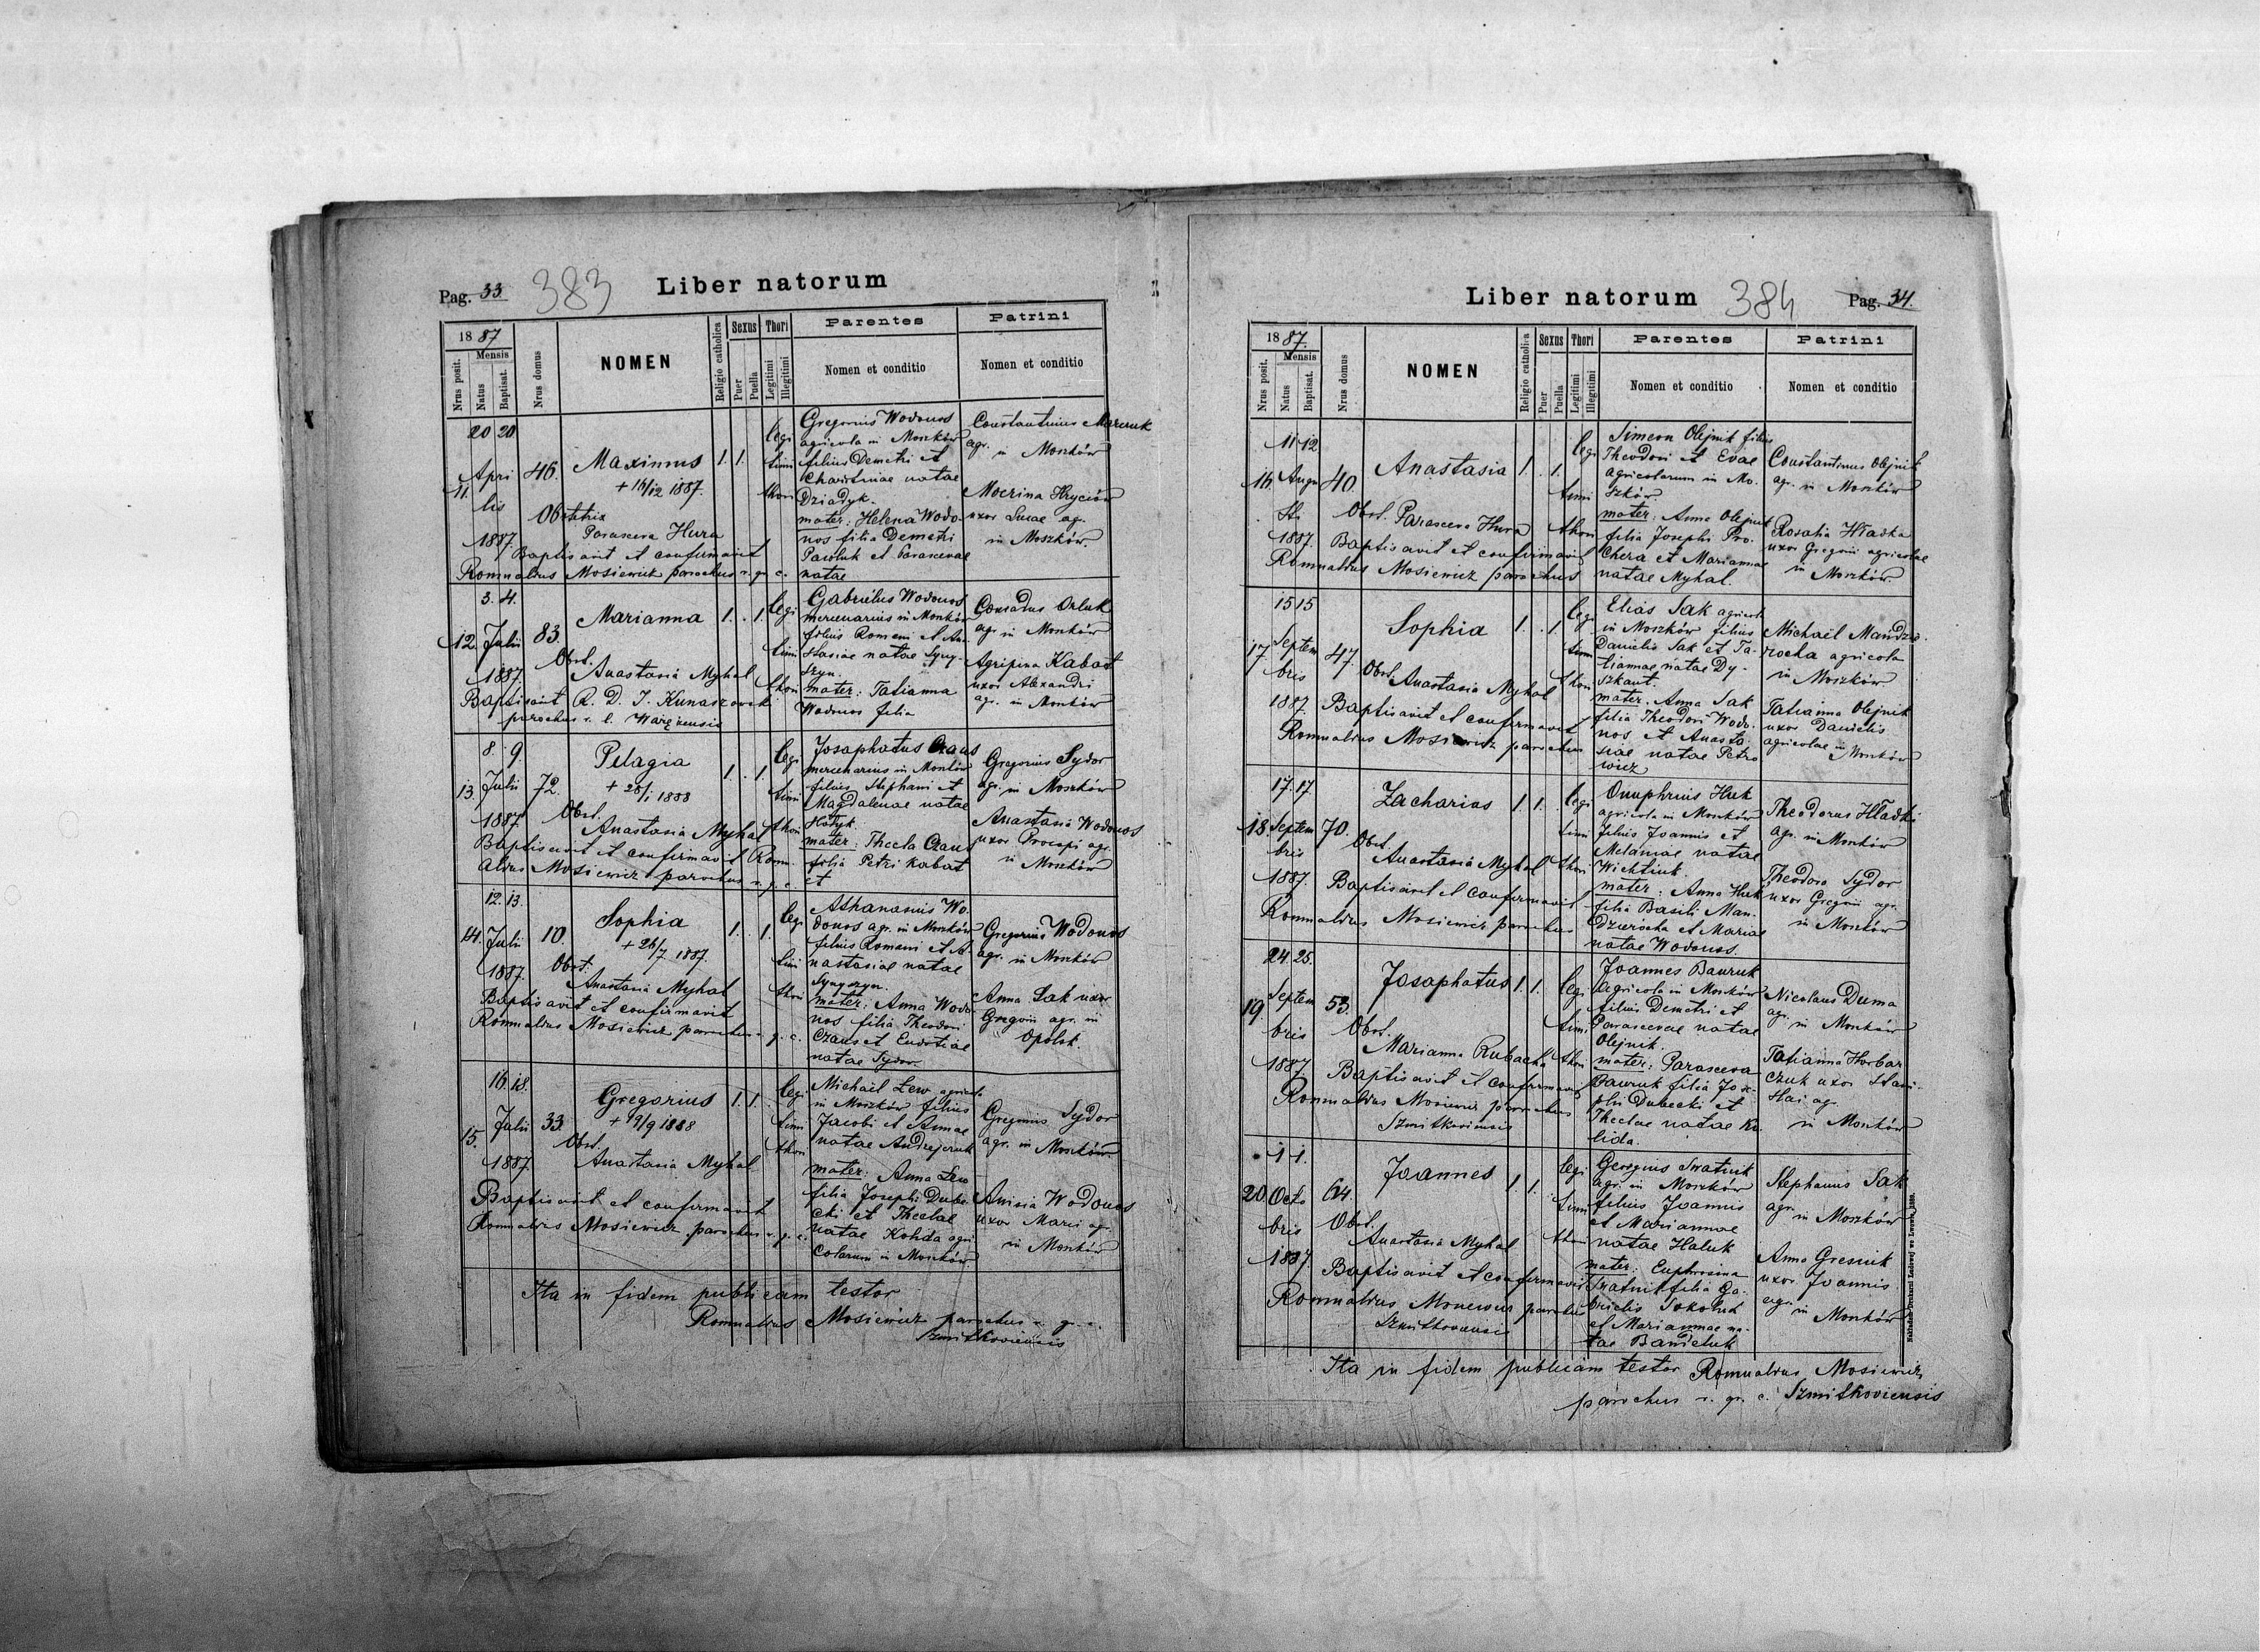 Pag. 33.
383
Liber natorum
1887
Nrus posit.
Mensis
Natus
Baptisat.
Nrus domus
NOMEN
Religio catholica
Sexus
Puer
Puella
Thori
Legitimi
Illegitimi
Parentes
Nomen et conditio
Patrini
Nomen et conditio
11.
20 20
Apri
lis
1887.
46.
Maximus
+ 16/12 1887.
Obstetrix
Parasceva Hura
Baptisavit et confirmavit
Romualdus Mosiewicz parochus r. gr. c.
1. 1.
legi
timi
thori
Gregorius Wodonos
agricola in Moszków
filius Demetri et
Christinae natae
Dziadyk.
mater: Helena Wodo-
nos filia Demetri
Pawluk et Parascevae
natae
Constantinus
agr. in Moszków
Mocrina Hryciów
uxor Lucae agr.
in Moszków.
12.
3. 4.
Julii
1887.
83.
Marianna
Obst.
Anastasia Myhal
Baptisavit R. D. J. Kunaszowski
parochus r. l. Warężensis
1. . 1.
legi
timi
thori
Gabrielus Wodonos
mercenarius in Moszków
filius Romani et An-
stasiae natae Syny-
szyn.
mater: Tatianna
Wodonos filia
Conradus Orluk
agr. in Moszków
Agripina Kabat
uxor Alexandri
agr. in Moszków
13.
8. 9.
Julii
1887.
72.
Pelagia
+ 28/1 1888
Obst.
Anastasia Myhal
Baptisavit et confirmavit Romu-
aldus Mosiewicz parochus r. g. c.
1. . 1.
legi
timi
thori
Josaphatus Czaus
mercenarius in Moszków
filius Stephani et
Magdalenae natae
Hołyk.
mater: Thecla Czaus
filia Petri Kabat
et
Gregorius Sydor
agr. in Moszków
Anastasia Wodonos
uxor Procopi agr.
in Moszków
14.
12. 13.
Julii
1887.
10.
Sophia
+ 26/7 1887.
Obst.
Anastasia Myhal
Baptisavit et confirmavit
Romualdus Mosiewicz parochus r. g. c.
1. . 1.
legi
timi
thori
Athanasius Wo-
donos agr. in Moszków
filius Romani et A-
nastasiae natae
mater: Anna Wodo-
nos filia Theodori
Czaus et Eudotiae
natae Sydor.
Gregorius Wodonos
agr. in Moszków
Anna Sak uxor
Gregorii agr. in
Opolsk.
15.
16. 18.
Julii
1887.
33.
Gregorius
Obst.
Anastasia Myhal
Baptisavit et confirmavit
Romualdus Mosiewicz parochus r. g. c.
1. 1.
legi
timi
thori
Michael Lew agricola
in Moszków filius
Jacobi et Annae
natae Andrejczuk
mater: Anna Lew
filia Josephi Dube-
cki et Theclae
natae Kohda agri
colarum in Moszków
Gregorius Sydor
agr. in Moszków.
Anisia Wodonos
uxor Marci agr.
in Moszków
Ita in fidem publicam testor
Romualdus Mosiewicz parochus r. g. c.
Szmitkoviensis
Liber natorum
384
Pag. 34.
1887.
Nrus posit.
Mensis
Natus
Baptisat.
Nrus domus
NOMEN
Religio catholica
Sexus
Puer
Puella
Thori
Legitimi
Illegitimi
Parentes
Nomen et conditio
Patrini
Nomen et conditio
16.
11 12
Augu
sti
1887.
40.
Anastasia
Obst. Parasceva Hura
Baptisavit et confirmavit
Romualdus Mosiewicz parochus
1. . 1.
legi
timi
thori
Simeon Olejnik filius
Theodori et Evae
agricolarum in Mo-
szków.
mater: Anna Olejnik
filia Josephi Pro-
chera et Mariannae
natae Myhal.
Constantinus Olejnik
agr. in Moszków
Rosalia Hładka
uxor Gregorii agricolae
in Moszków
17.
15 15
Septem
bris
1887.
47.
Sophia
Obst. Anastasia Myhal
Baptisavit et confirmavit
Romualdus Mosiewicz parochus
1. . 1.
legi
timi
thori
Elias Sak agricola
in Moszków filius
Danielis Sak et Ta-
tiannae natae Dy-
szkant.
mater. Anna Sak
filia Theodori Wodo-
nos et Anasta-
siae natae Petro
wicz
Michael Mandzu-
rocha agricola
in Moszków
Tatianna Olejnik
uxor Danielis
agricolae in Moszków
18.
17. 17.
Septem
bris
1887.
70.
Zacharias
Obst.
Anastasia Myhal
Baptisavit et confirmavit
Romualdus Mosiewicz parochus
1. 1.
legi
timi
thori
Onuphrius Huk
agricola in Moszków
filius Joannis et
Melaniae natae
Wichtiuk.
mater: Anna Huk
filia Basili Man-
dziurocha et Mariae
natae Wodonos.
Theodorus Hładki
agr. in Moszków
Theodora Sydor
uxor Gregorii agr.
in Moszków
19.
24. 25.
Septem
bris
1887.
53.
Josaphatus
Obst.
Marianna Rubacha
Baptisavit et confirmavit
Romualdus Mosiewicz parochus
Szmitkoviensis
1. 1.
legi
timi
thori
Joannes Bauruk
agricola in Moszków
filius Demetri et
Parascevae natae
Olejnik.
mater: Parasceva
Bauruk filia Jose-
phi Dubecki et
Theclae natae Ku-
lida.
Nicolaus Duma
agr. in Moszków
Tatianna Horbac
czuk uxor Stani-
slai agr.
in Moszków
20.
1 1.
Octo
bris
1887.
64.
Joannes
Obst.
Anastasia Myhal
Baptisavit et confirmavit
Romualdus Mosiewicz parochus
Szmitkoviensis
1. 1.
legi
timi
thori
Georgius Swatnik
agr. in Moszków
filius Joannis
et Mariannae
natae Haluk
mater: Euphrosina
Swatnik filia Ga-
brielis Sokoluk
et Mariannae na-
tae Banicluk
Stephanus Sak
agr. in Moszków
Anna Gresiuk
uxor Joannis
agr. in Moszków
Ita in fidem publicam testor Romualdus Mosiewicz
parochus r. gr. c. Szmitkoviensis